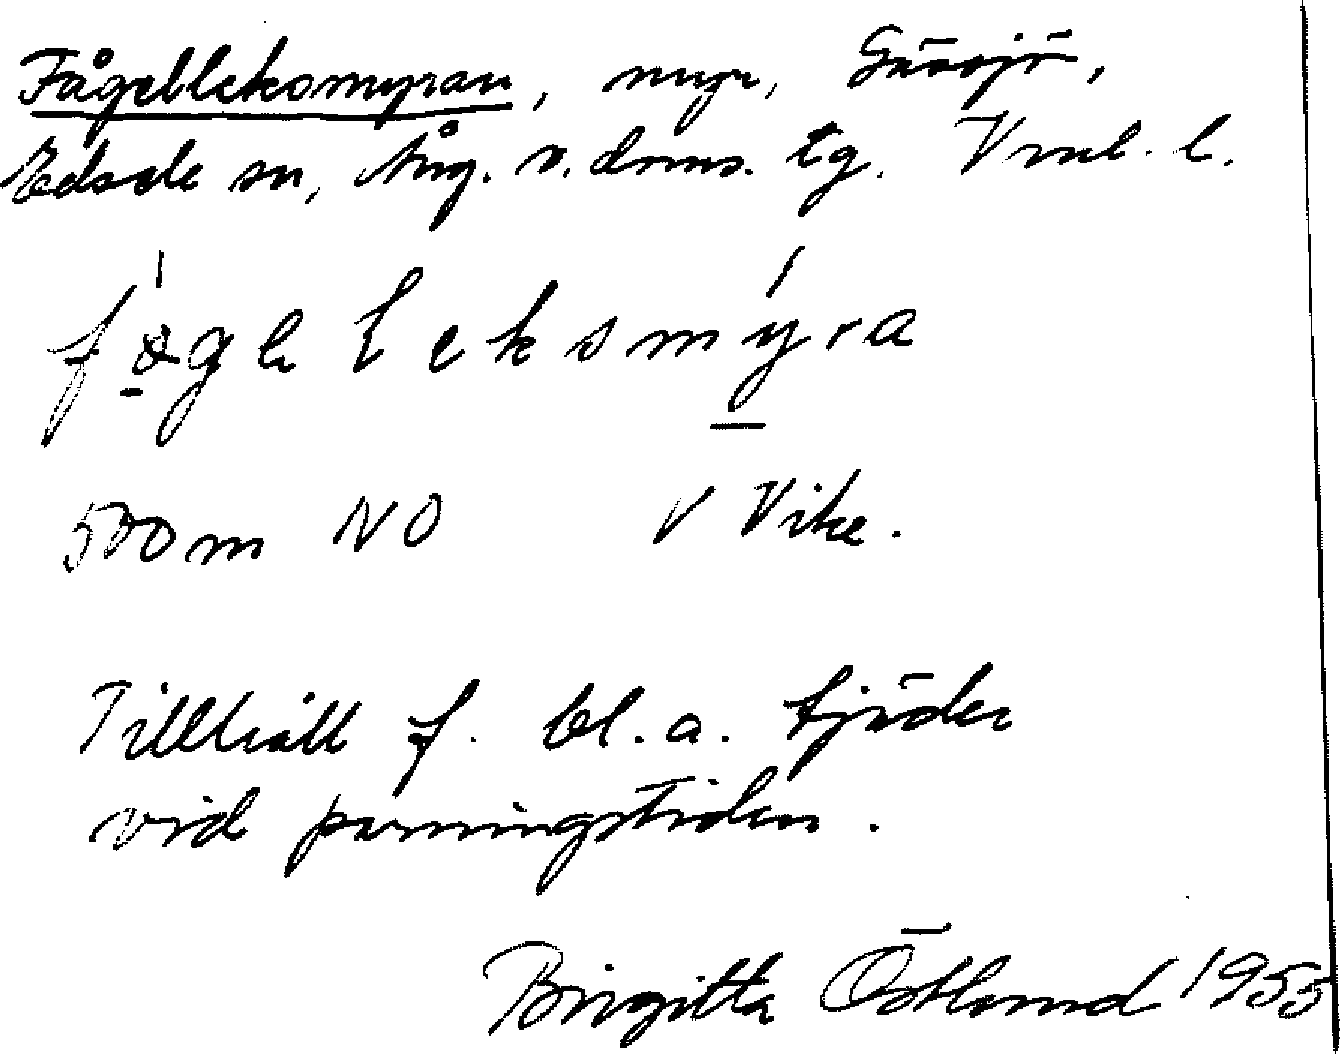 Fågelleksmyran, myr, Gåsjö,
Edsele sn, Ång. v. doms. tg. Vnl. l.
fågelleksmýra
500 m NO V Vike.
Tillhåll f. bl.a. tjäder
vid parningstiden.
Birgitta Östlund 1955